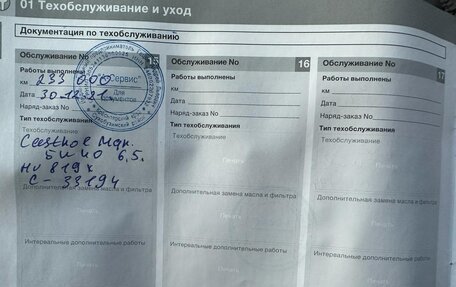 01 Техобслуживание и уход
Документация по техобслуживанию
Обслуживание No 15
Работы выполнены
км 233 000
Дата 30.12.21
Наряд-заказ No
Тип техобслуживания
Техобслуживание
5W40 6.5.
HU 819 x
C - 33194
Дополнительная замена масла и фильтра
Интервальные дополнительные работы
Печать
Сервис"
Для
документов
Обслуживание No 16
Работы выполнены
км
Дата
Наряд-заказ No
Тип техобслуживания
Техобслуживание
Печать
Дополнительная замена масла и фильтра
Печать
Интервальные дополнительные работы
Печать
Обслуживание No 17
Работы выполнены
км
Дата
Наряд-заказ No
Тип техобслуживания
Техобслуживание
Печать
Дополнительная замена масла и фильтра
Печать
Интервальные дополнительные работы
Печать